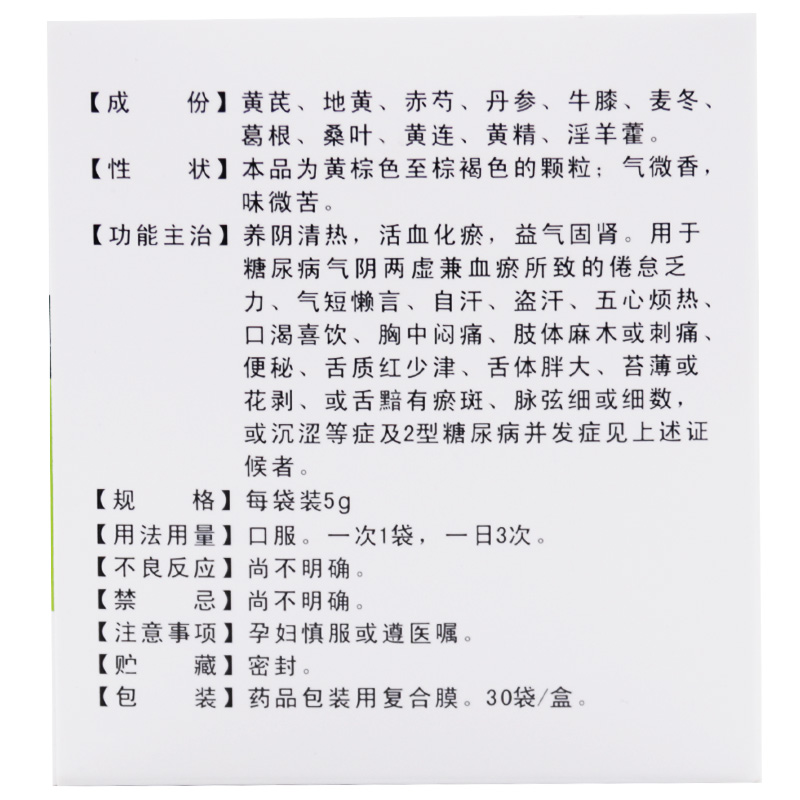 【成　　份】黄芪、地黄、赤芍、丹参、牛膝、麦冬、
葛根、桑叶、黄连、黄精、淫羊藿。
【性　　状】本品为黄棕色至棕褐色的颗粒；气微香，
味微苦。
【功能主治】养阴清热，活血化瘀，益气固肾。用于
糖尿病气阴两虚兼血瘀所致的倦怠乏
力、气短懒言、自汗、盗汗、五心烦热、
口渴喜饮、胸中闷痛、肢体麻木或刺痛、
便秘、舌质红少津、舌体胖大、苔薄或
花剥、或舌黯有瘀斑、脉弦细或细数，
或沉涩等症及2型糖尿病并发症见上述证
候者。
【规　　格】每袋装5g
【用法用量】口服。一次1袋，一日3次。
【不良反应】尚不明确。
【禁　　忌】尚不明确。
【注意事项】孕妇慎服或遵医嘱。
【贮　　藏】密封。
【包　　装】药品包装用复合膜。30袋/盒。